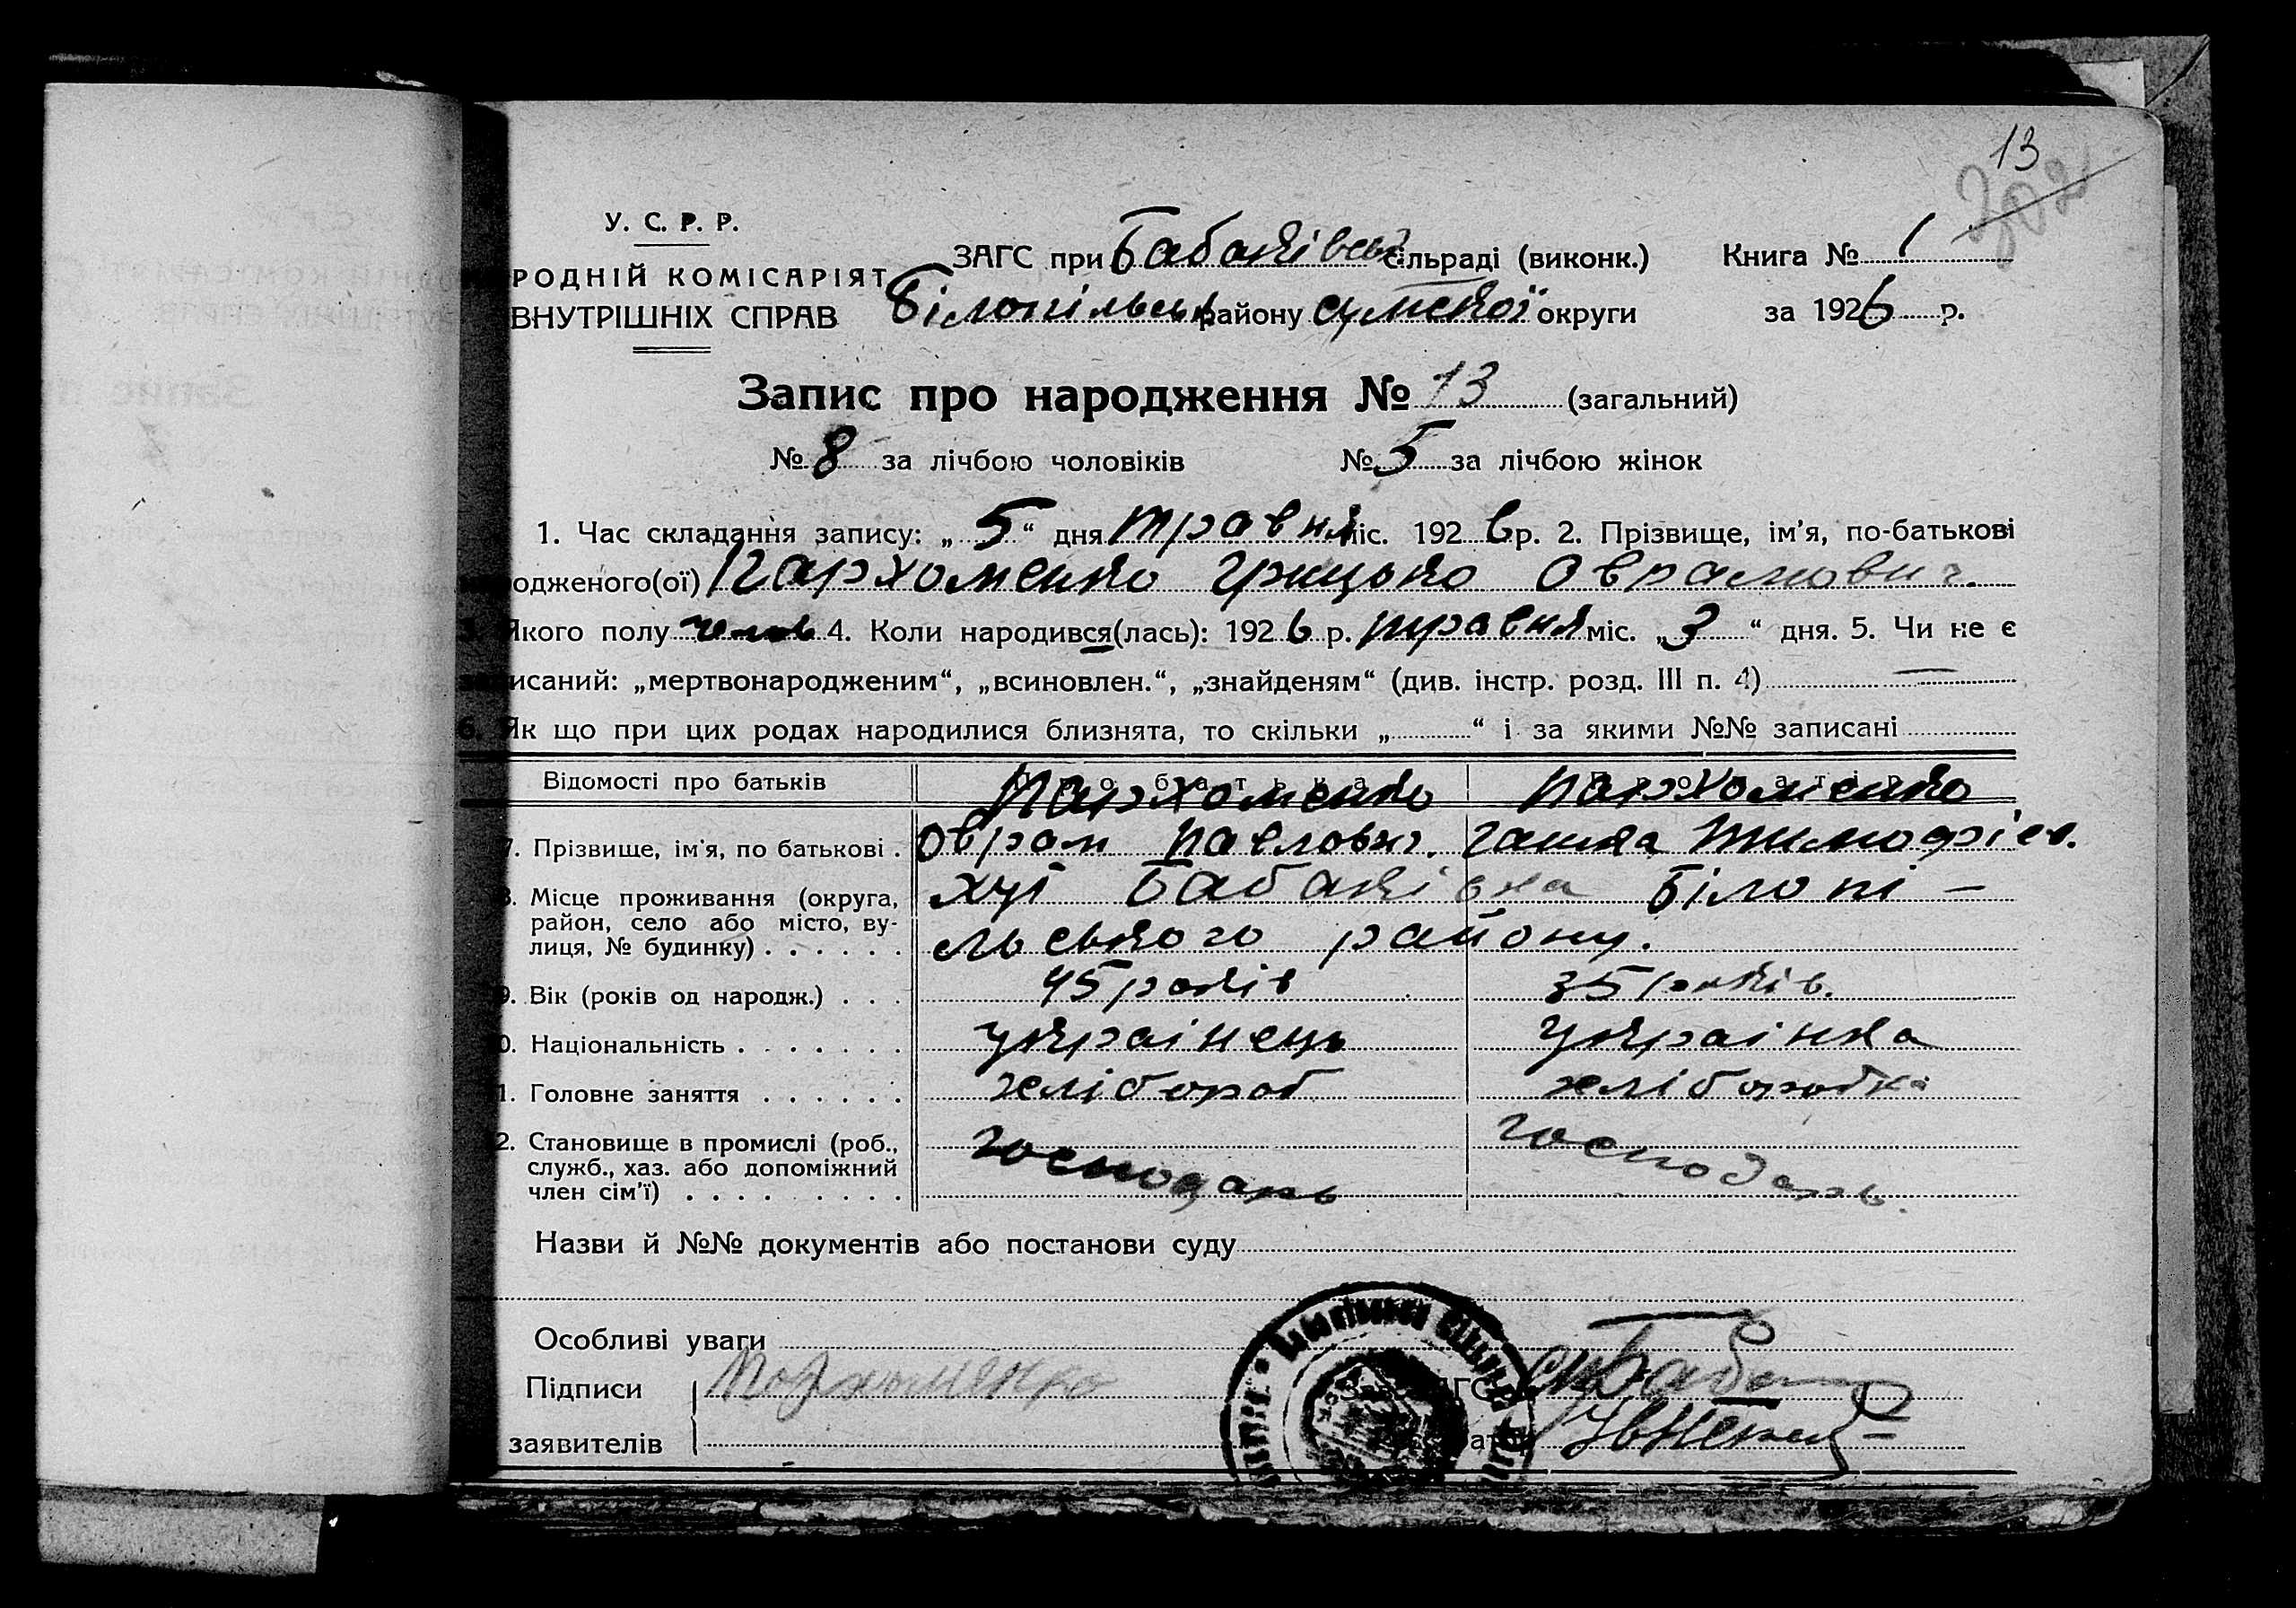 13
У. С. Р. Р.
РОДНІЙ КОМІСАРІЯТ
ВНУТРІШНІХ СПРАВ
ЗАГС при Бабаківськ сільраді (виконк.) Книга № 1
Білопільськ району Сумської округи за 1926 р.
Запис про народження № 13 (загальний)
№ 8 за лічбою чоловіків № 5 за лічбою жінок
1. Час складання запису: „5“ дня травня міс. 1926 р. 2. Прізвище, ім’я, по-батькові
одженого(ої) Пархоменко Грицько Оврамович.
3. Якого полу чолов 4. Коли народився(лась): 1926 р. травня міс. „3“ дня. 5. Чи не є
исаний: „мертвонародженим“, „всиновлен.“, „знайденям“ (див. інстр. розд. III п. 4) —
6. Як що при цих родах народилися близнята, то скільки „ “ і за якими №№ записані
Відомості про батьків
Пархоменко Пархоменко
7. Прізвище, ім'я, по батькові . Оврам Павлович. Ганна Тимофієв.
8. Місце проживання (округа, район, село або місто, вулиця, № будинку) . . . . . . хут Бабаківка Білопі-
льського району.
9. Вік (років од народж.) . . . 45 років 35 років.
0. Національність . . . . . . . українець Українка
1. Головне заняття . . . . . . хлібороб хліборобка
2. Становище в промислі (роб.,
служб., хаз. або допоміжний
член сім'ї) . . . . . . . . . господарь господарь.
Назви й №№ документів або постанови суду
Особливі уваги
Підписи Пархоменко
заявителів